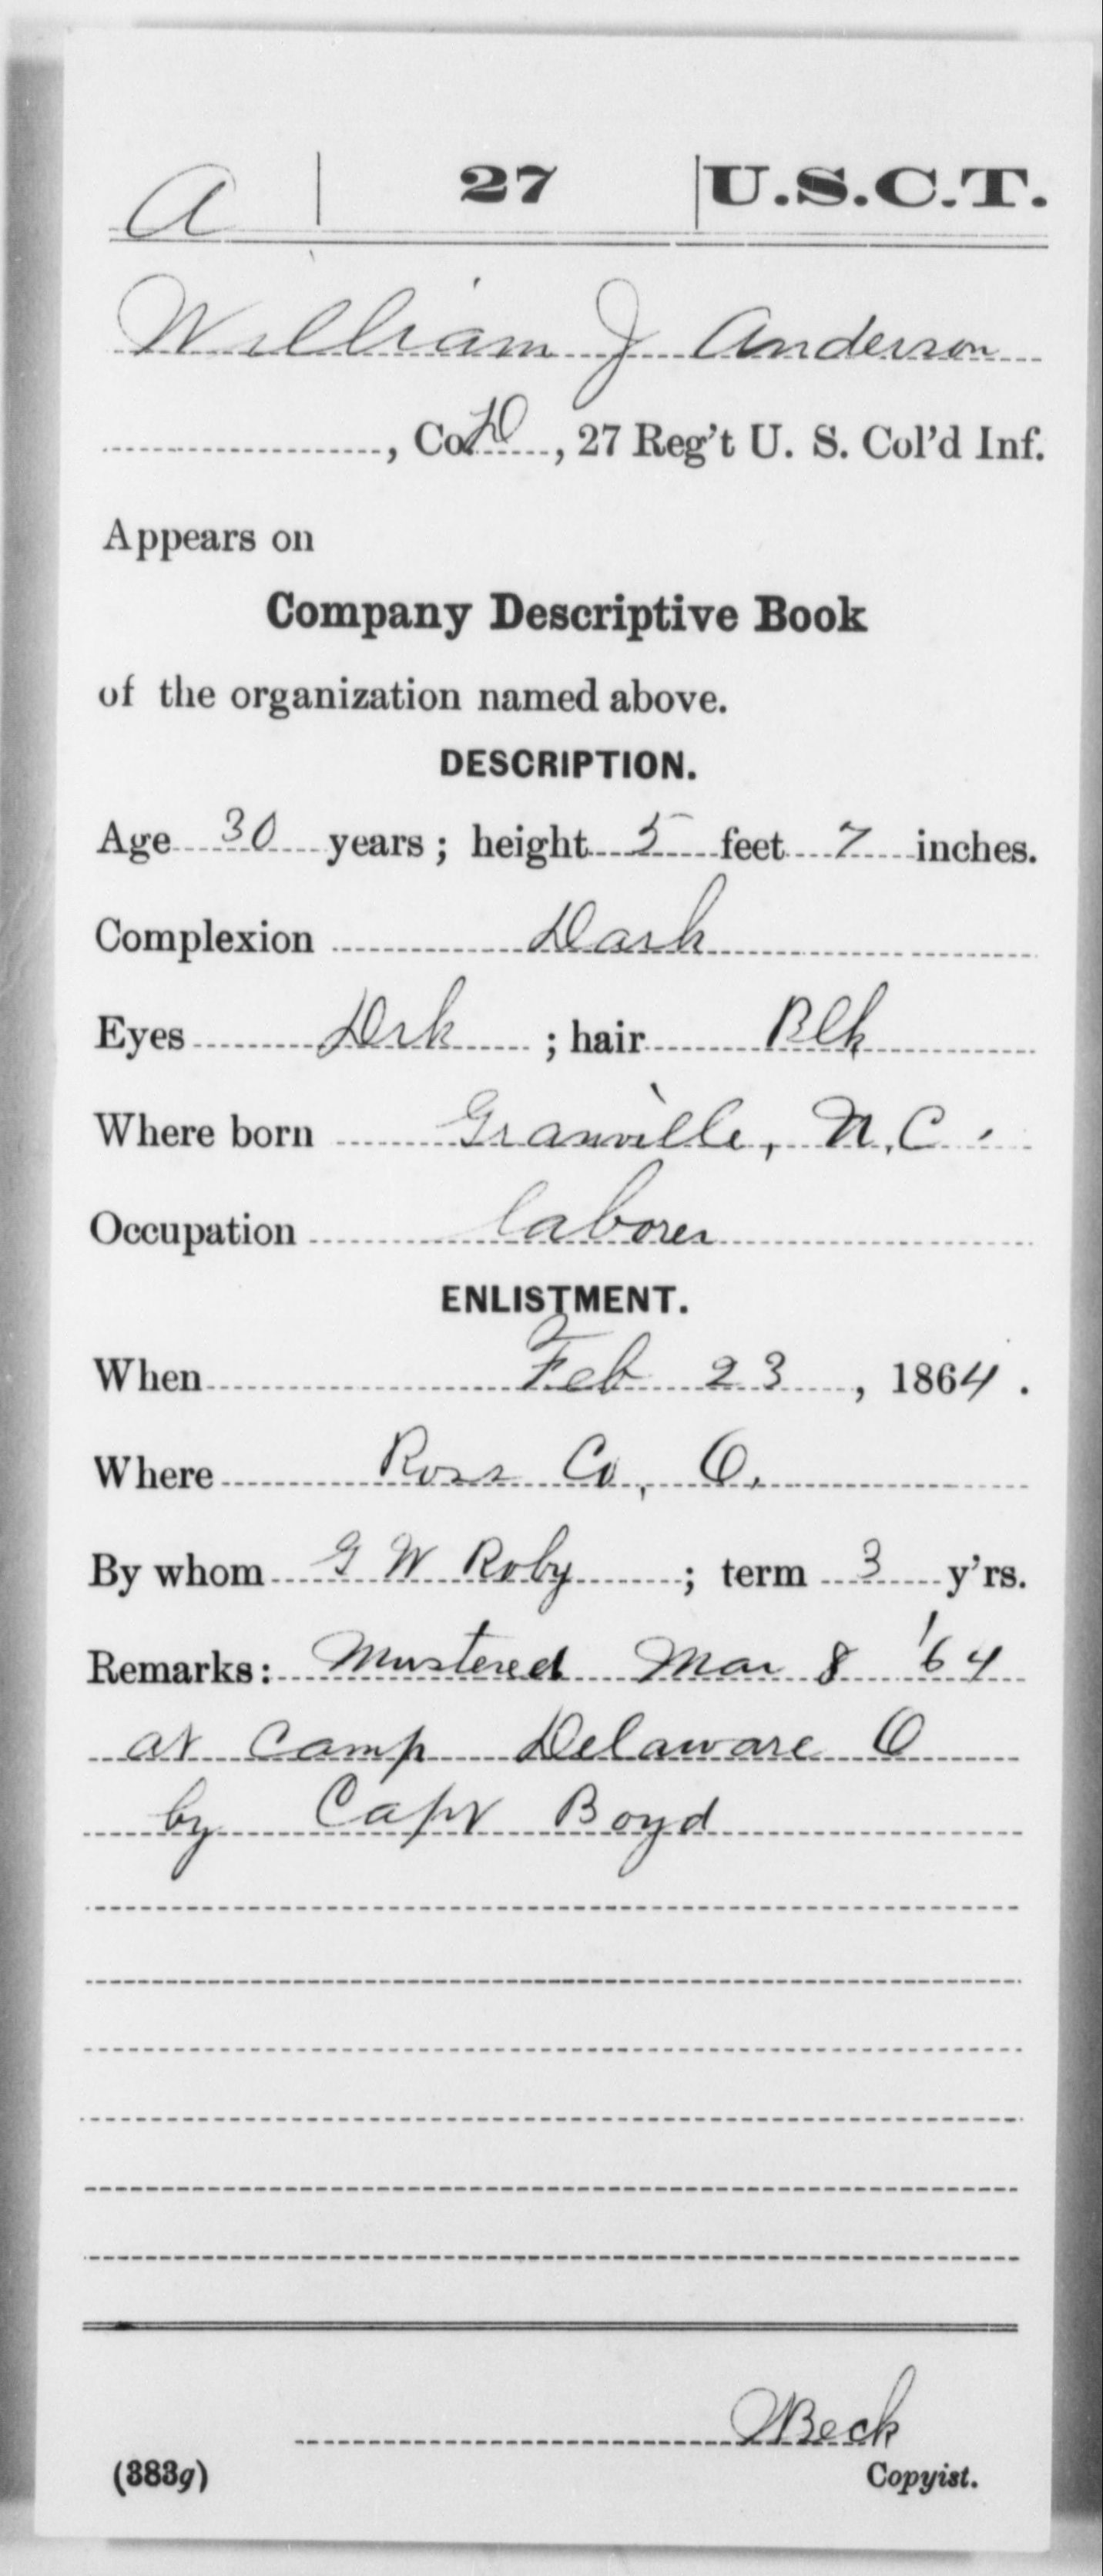 A | 27 | U.S.C.T.
William J Anderson
, Co. D, 27 Reg't U. S. Col'd Inf.
Appears on
Company Descriptive Book
of the organization named above.
DESCRIPTION.
Age 30 years; height 5 feet 7 inches.
Complexion Dark
Eyes Drk; hair Blk
Where born Granville, N.C.
Occupation laborer
ENLISTMENT.
When Feb 23, 1864.
Where Ross Co, O.
By whom G W Roby; term 3 y'rs.
Remarks: Mustered Mar 8 '64
at Camp Delaware O
by Capt Boyd
Beck
(383g) Copyist.